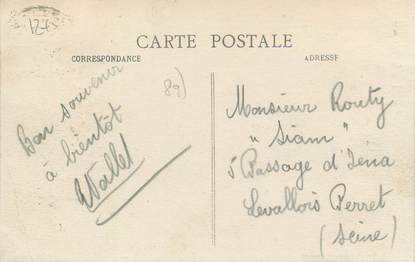 1245
CARTE POSTALE
CORRESPONDANCE
ADRESSE
89)
Bon souvenir
à bientôt
Monsieur Routy
" Siam "
5 Passage d'Iéna
Levallois Perret
(Seine)